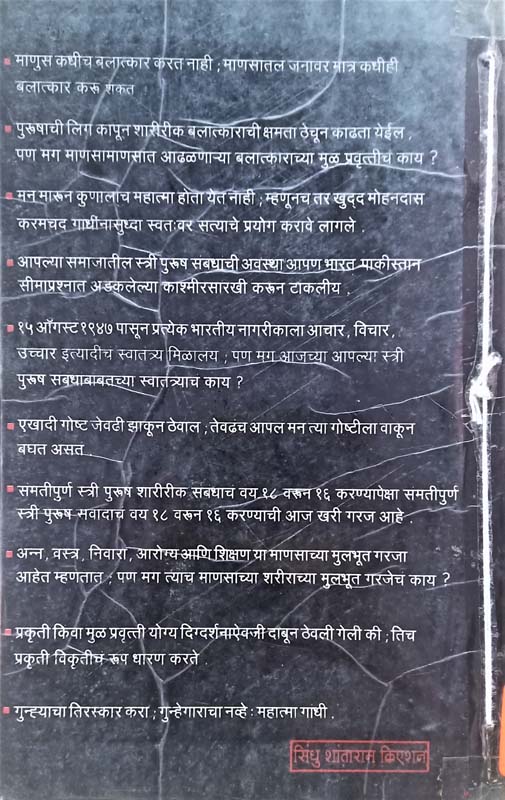 माणुस कधीच बलात्कार करत नाही ; माणसातल जनावर मात्र कधीही
बलात्कार करू शकत
पुरूषाची लिग कापून शारीरीक बलात्काराची क्षमता ठेचून काढता येईल ,
पण मग माणसामाणसात आढळणाऱ्या बलात्काराच्या मुळ प्रवृत्तीच काय ?
मन मारून कुणालाच महात्मा होता येत नाही ; म्हणूनच तर खुद्द मोहनदास
करमचद गाधींनासुध्दा स्वतःवर सत्याचे प्रयोग करावे लागले .
आपल्या समाजातील स्त्री पुरूष सबधाची अवस्था आपण भारत पाकीस्तान
सीमाप्रश्नात अडकलेल्या काश्मीरसारखी करून टाकलीय .
१५ ऑगस्ट १९४७ पासून प्रत्येक भारतीय नागरीकाला आचार , विचार ,
उच्चार इत्यादीच स्वातत्र्य मिळालय ; पण मग आजच्या आपल्या स्त्री
पुरूष सबधाबाबतच्या स्वातत्र्याच काय ?
एखादी गोष्ट जेवढी झाकून ठेवाल ; तेवढच आपल मन त्या गोष्टीला वाकून
बघत असत .
समतीपुर्ण स्त्री पुरूष शारीरीक सबधाच वय १८ वरून १६ करण्यापेक्षा समतीपुर्ण
स्त्री पुरूष सवादाच वय १८ वरून १६ करण्याची आज खरी गरज आहे .
अन्न , वस्त्र , निवारा , आरोग्य आणि शिक्षण या माणसाच्या मुलभूत गरजा
आहेत म्हणतात ; पण मग त्याच माणसाच्या शरीराच्या मुलभूत गरजेच काय ?
प्रकृती किवा मुळ प्रवृत्ती योग्य दिग्दर्शनाऐवजी दाबून ठेवली गेली की ; तिच
प्रकृती विकृतीच रूप धारण करते .
गुन्ह्याचा तिरस्कार करा ; गुन्हेगाराचा नव्हे : महात्मा गाधी .
सिंधु शांताराम क्रिएशन